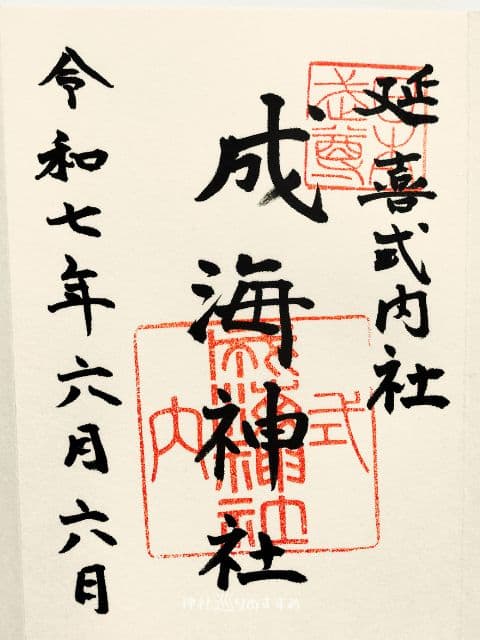 延喜式内社
成海神社
令和七年六月六日
式
内
神社巡りのすすめ